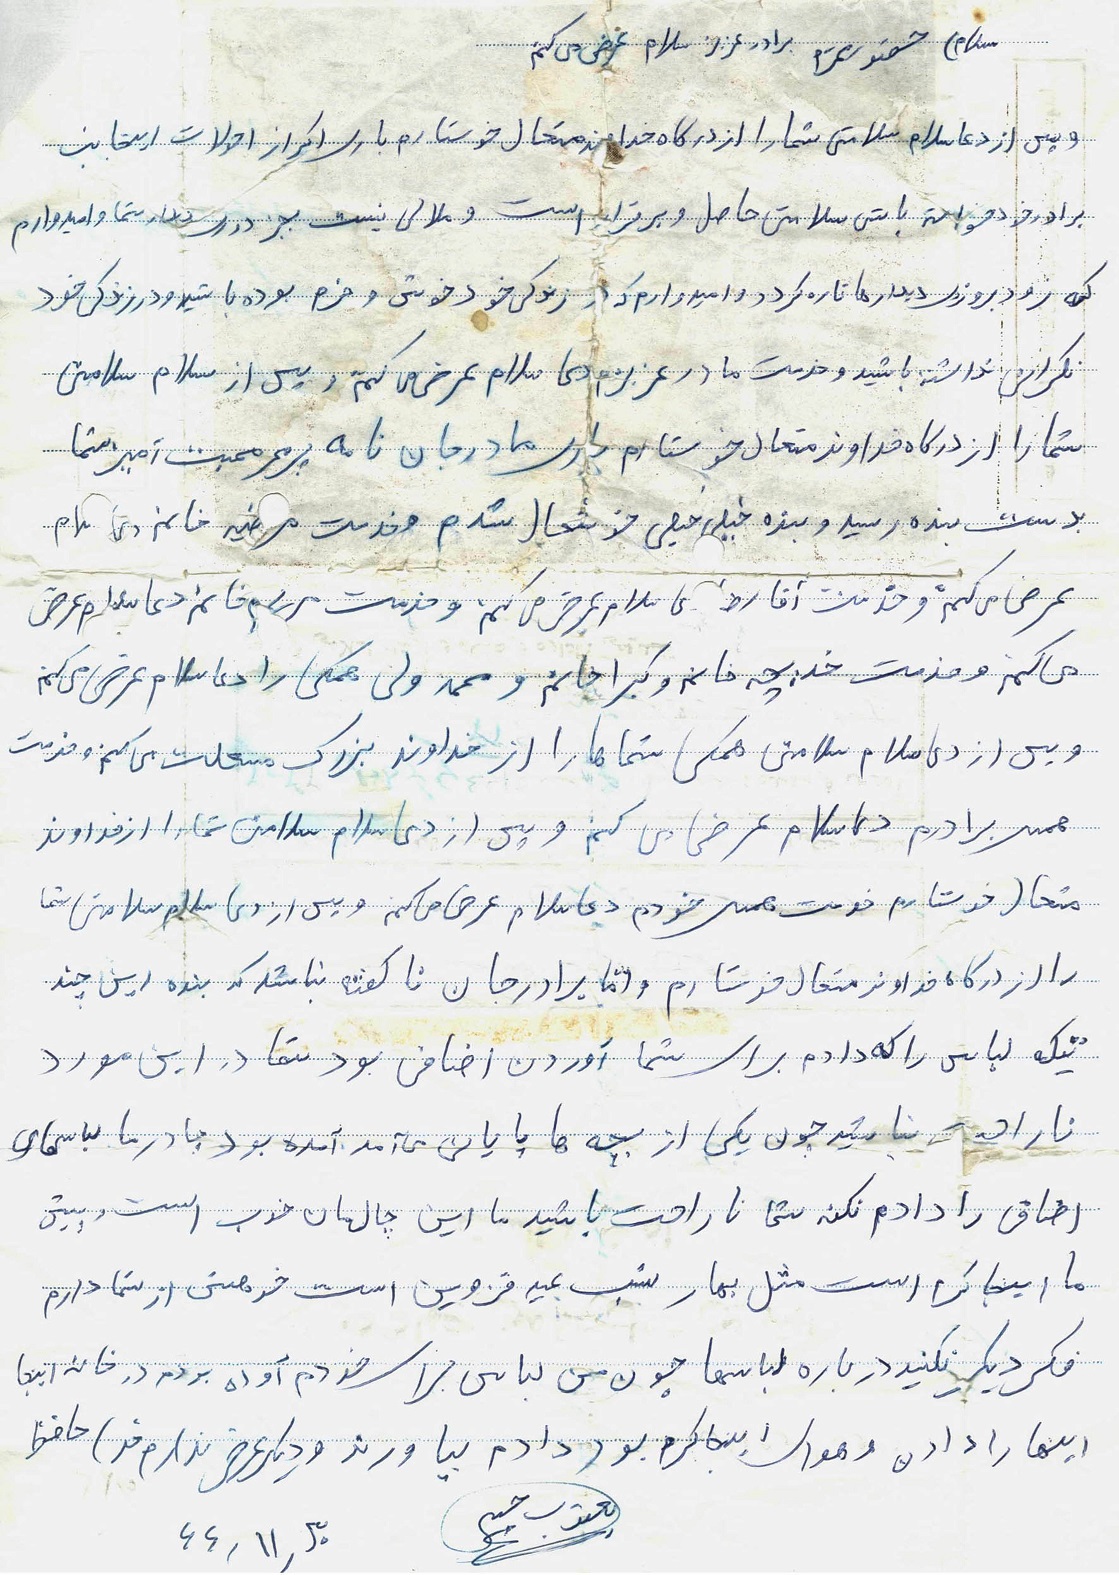 سلام) حضور محترم برادر عزیز سلام عرض می کنم
و پس از دعا سلام سلامتی شما را از درگاه خداوند متعال خوستارم باری اگر از احوالات اینجانب
برادر خود خواسته باشی سلامتی حاصل و برقرار است و ملالی نیست بجز دوری دیدار شما و امیدوارم
که زود بزودی دیدارها تازه گردد و امیدوارم که در زندگی خود خوش و خرم بوده باشید و در زندگی خود
نگرانی نداشته باشید و خدمت مادر عزیزم دعا سلام عرض می کنم و پس از سلام سلامتی
شما را از درگاه خداوند متعال خوستارم باری مادر جان نامه پر مهر محبت آمیز شما
بدست بنده رسید و بنده خیلی خیلی خوشحال شدم و خدمت مرضیه خانم دعا سلام
عرض می کنم و خدمت آقا رضا دعا سلام عرض می کنم و خدمت مریم خانم دعا سلام عرض
می کنم و خدمت خدیجه خانم و کبرا خانم و محمد ولی همگی را دعا سلام عرض می کنم
و پس از دعا سلام سلامتی همگی شماها را از خداوند بزرگ مسئلت می کنم و خدمت
همسر برادرم دعا سلام عرض می کنم و پس از دعا سلام سلامتی شما را از خداوند
متعال خوستارم خدمت همسر خودم دعا سلام عرض می کنم و پس از دعا سلام سلامتی شما
را از درگاه خداوند متعال خوستارم و اما برادر جان نا گفته نباشد که بنده این چند
تیکه لباس را که دادم برای شما آوردن اضافی بود شما در این مورد
ناراحت نباشید چون یکی از بچه ها پایانی می آمد آمده بود چادر ما لباسهای
اضافی را دادم نکنه شما ناراحت باشید ما این جا حالمان خوب است و پیش
ما اینجا گرم است مثل بهار شب عید قزوین است خوهش از شما دارم
فکر دیگر نکنید درباره لباسها چون من لباس برای خودم آورده بودم در خانه اینجا
اینها را دادن و هوای اینجا گرم بود دادم بیاورند و دیگر عرض ندارم خدا حافظ
یعقوب
۶۴٫۱۱٫۳۰